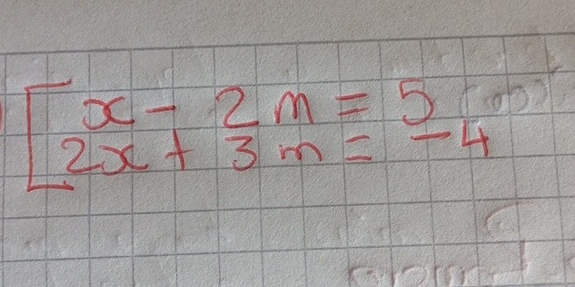 x - 2m = 5
2x + 3m = -4